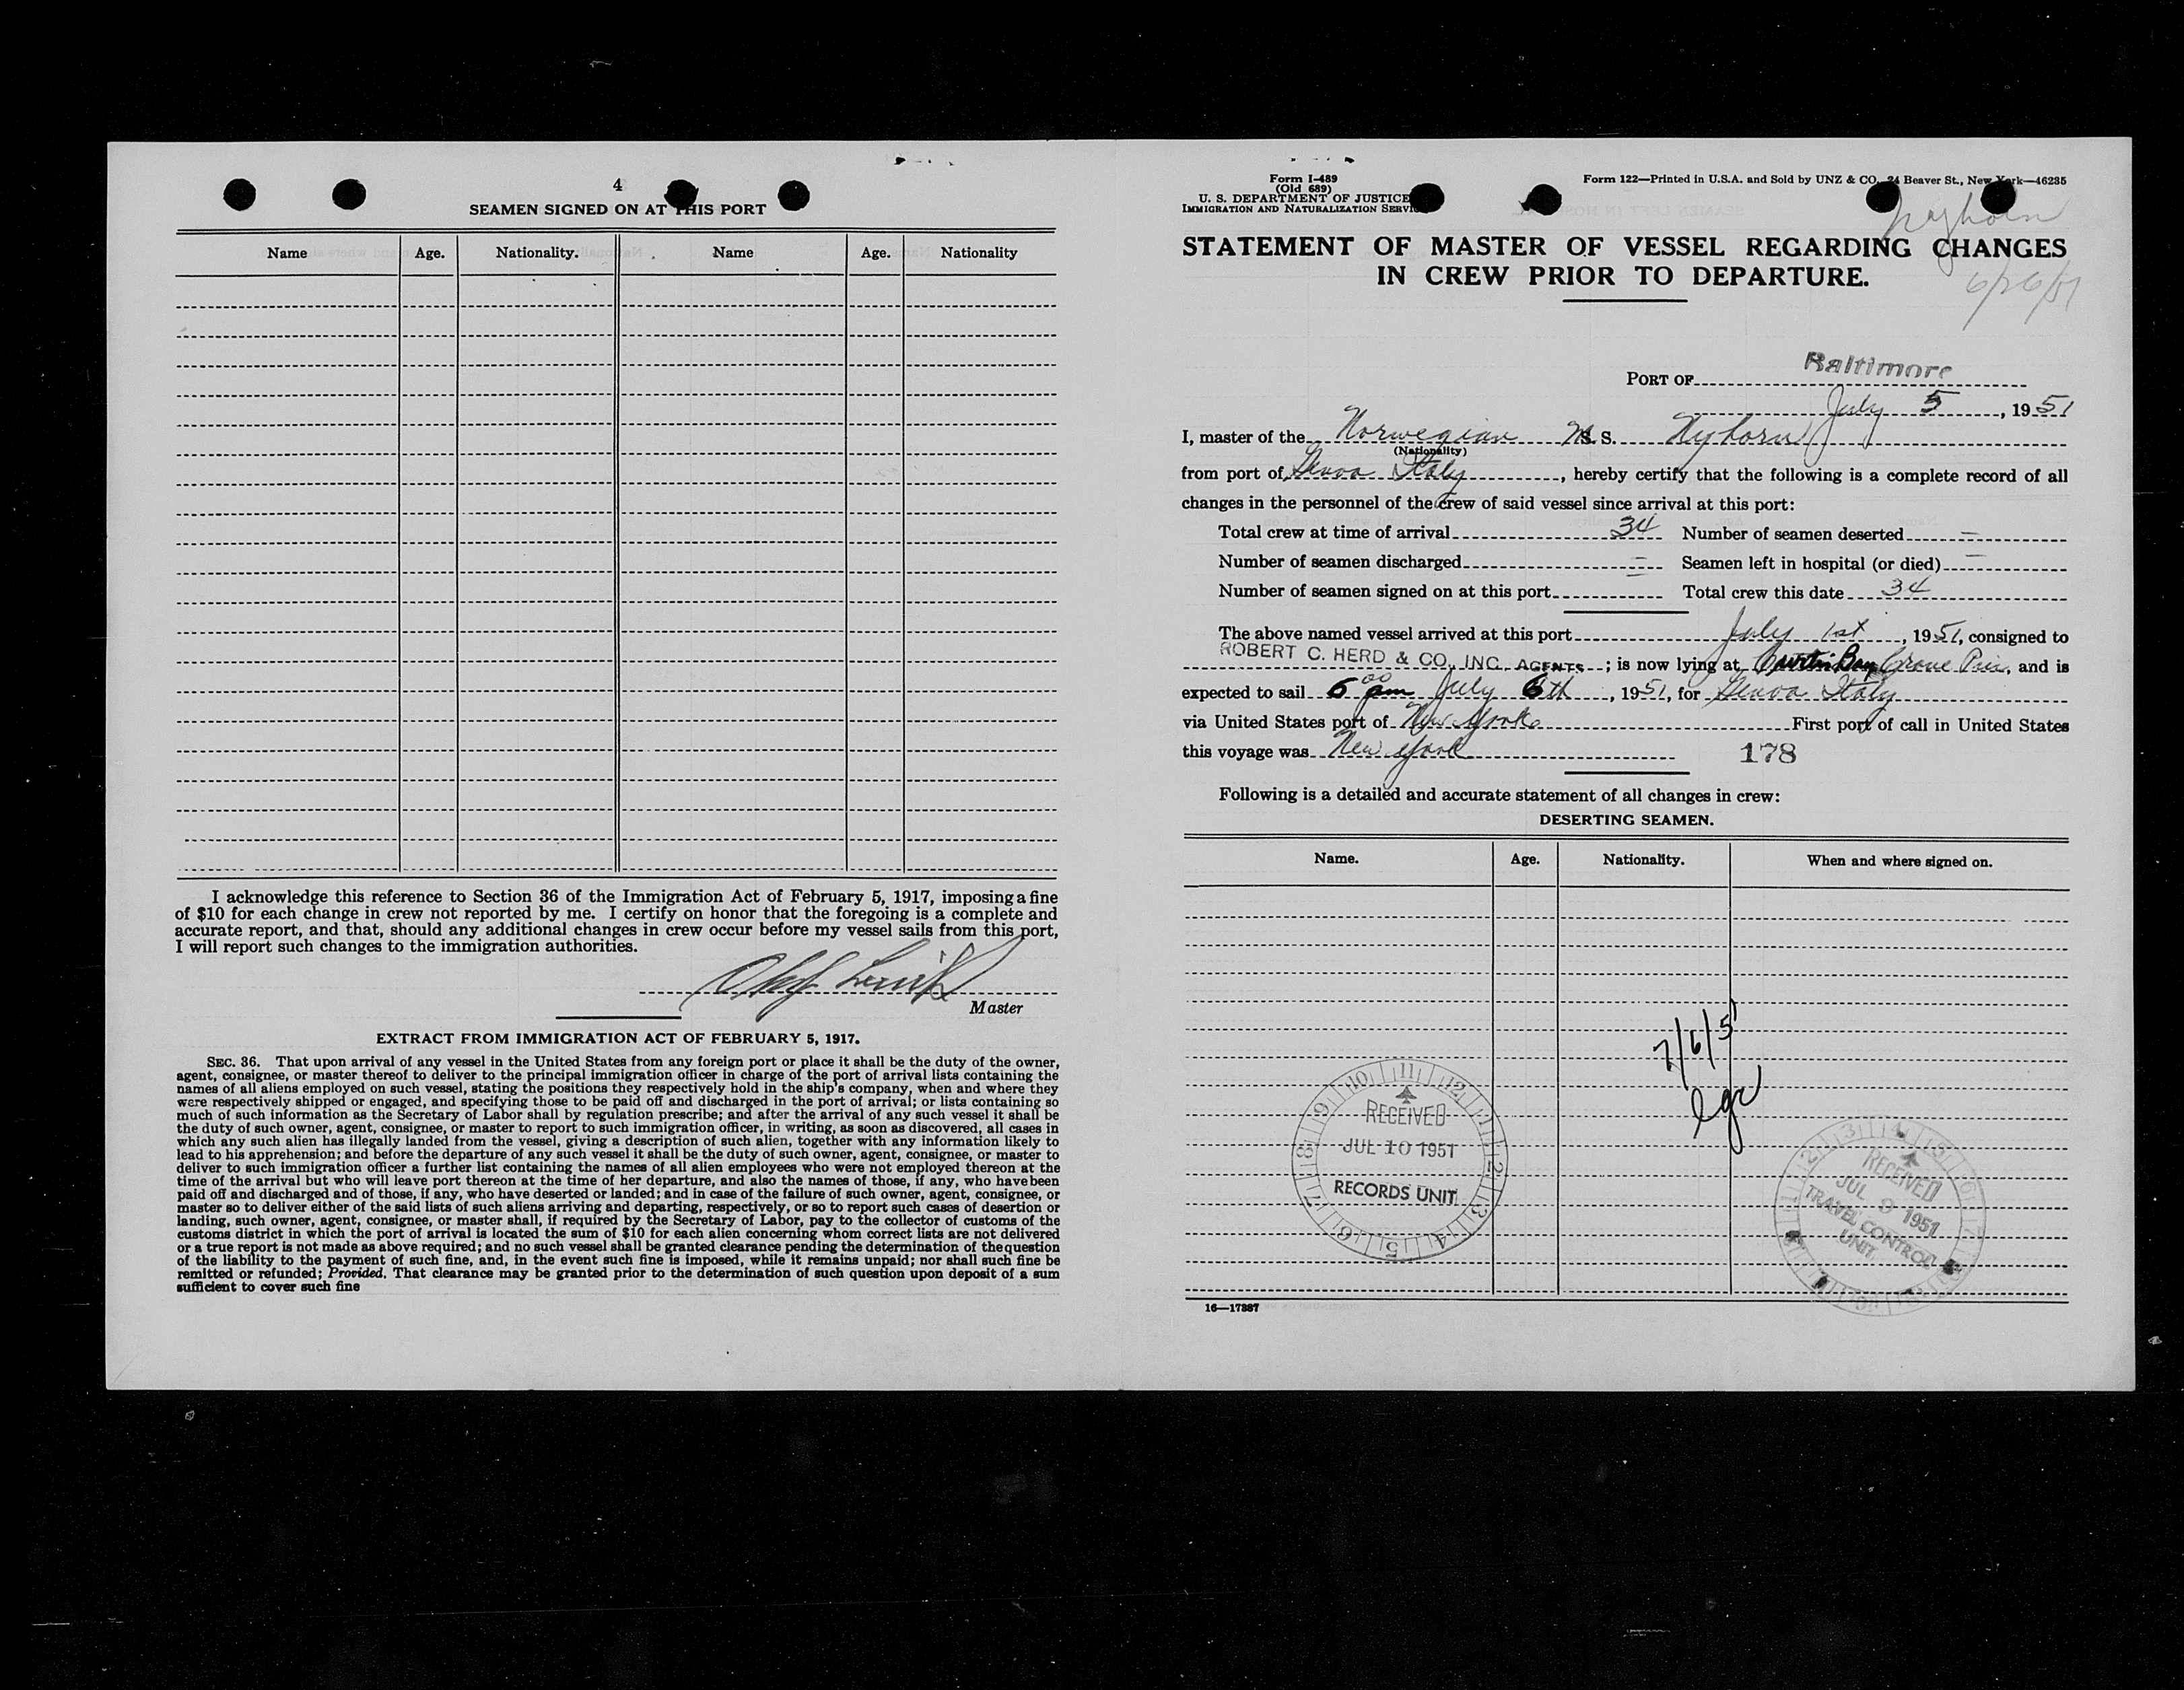 4
SEAMEN SIGNED ON AT THIS PORT
Name Age. Nationality. Name Age. Nationality
I acknowledge this reference to Section 36 of the Immigration Act of February 5, 1917, imposing a fine
of $10 for each change in crew not reported by me. I certify on honor that the foregoing is a complete and
accurate report, and that, should any additional changes in crew occur before my vessel sails from this port,
I will report such changes to the immigration authorities.
Master
EXTRACT FROM IMMIGRATION ACT OF FEBRUARY 5, 1917.
SEC. 36. That upon arrival of any vessel in the United States from any foreign port or place it shall be the duty of the owner,
agent, consignee, or master thereof to deliver to the principal immigration officer in charge of the port of arrival lists containing the
names of all aliens employed on such vessel, stating the positions they respectively hold in the ship's company, when and where they
were respectively shipped or engaged, and specifying those to be paid off and discharged in the port of arrival; or lists containing so
much of such information as the Secretary of Labor shall by regulation prescribe; and after the arrival of any such vessel it shall be
the duty of such owner, agent, consignee, or master to report to such immigration officer, in writing, as soon as discovered, all cases in
which any such alien has illegally landed from the vessel, giving a description of such alien, together with any information likely to
lead to his apprehension; and before the departure of any such vessel it shall be the duty of such owner, agent, consignee, or master to
deliver to such immigration officer a further list containing the names of all alien employees who were not employed thereon at the
time of the arrival but who will leave port thereon at the time of her departure, and also the names of those, if any, who have been
paid off and discharged and of those, if any, who have deserted or landed; and in case of the failure of such owner, agent, consignee, or
master so to deliver either of the said lists of such aliens arriving and departing, respectively, or so to report such cases of desertion or
landing, such owner, agent, consignee, or master shall, if required by the Secretary of Labor, pay to the collector of customs of the
customs district in which the port of arrival is located the sum of $10 for each alien concerning whom correct lists are not delivered
or a true report is not made as above required; and no such vessel shall be granted clearance pending the determination of the question
of the liability to the payment of such fine, and, in the event such fine is imposed, while it remains unpaid; nor shall such fine be
remitted or refunded; Provided, That clearance may be granted prior to the determination of such question upon deposit of a sum
sufficient to cover such fine
Form I-489
(Old 689)
U. S. DEPARTMENT OF JUSTICE
IMMIGRATION AND NATURALIZATION SERVICE
Form 122—Printed in U.S.A. and Sold by UNZ & CO. 24 Beaver St., New York—46235
Nyhorn
6/26/51
STATEMENT OF MASTER OF VESSEL REGARDING CHANGES
IN CREW PRIOR TO DEPARTURE.
PORT OF Baltimore
July 5, 1951
I, master of the Norwegian M.S. Nyhorn
(Nationality)
from port of Genoa Italy, hereby certify that the following is a complete record of all
changes in the personnel of the crew of said vessel since arrival at this port:
Total crew at time of arrival 34 Number of seamen deserted –
Number of seamen discharged – Seamen left in hospital (or died) –
Number of seamen signed on at this port – Total crew this date 34
The above named vessel arrived at this port July 1st, 1951, consigned to
ROBERT C. HERD & CO., INC. AGENTS; is now lying at Curtis Bay Crane Pier, and is
expected to sail 6 00 am July 6th, 1951, for Genoa Italy
via United States port of New York First port of call in United States
this voyage was New York
178
Following is a detailed and accurate statement of all changes in crew:
DESERTING SEAMEN.
Name. Age. Nationality. When and where signed on.
7/6/51
RECEIVED
JUL 10 1951
RECORDS UNIT
RECEIVED
JUL 9 1951
TRAVEL CONTROL
UNIT
16—17387